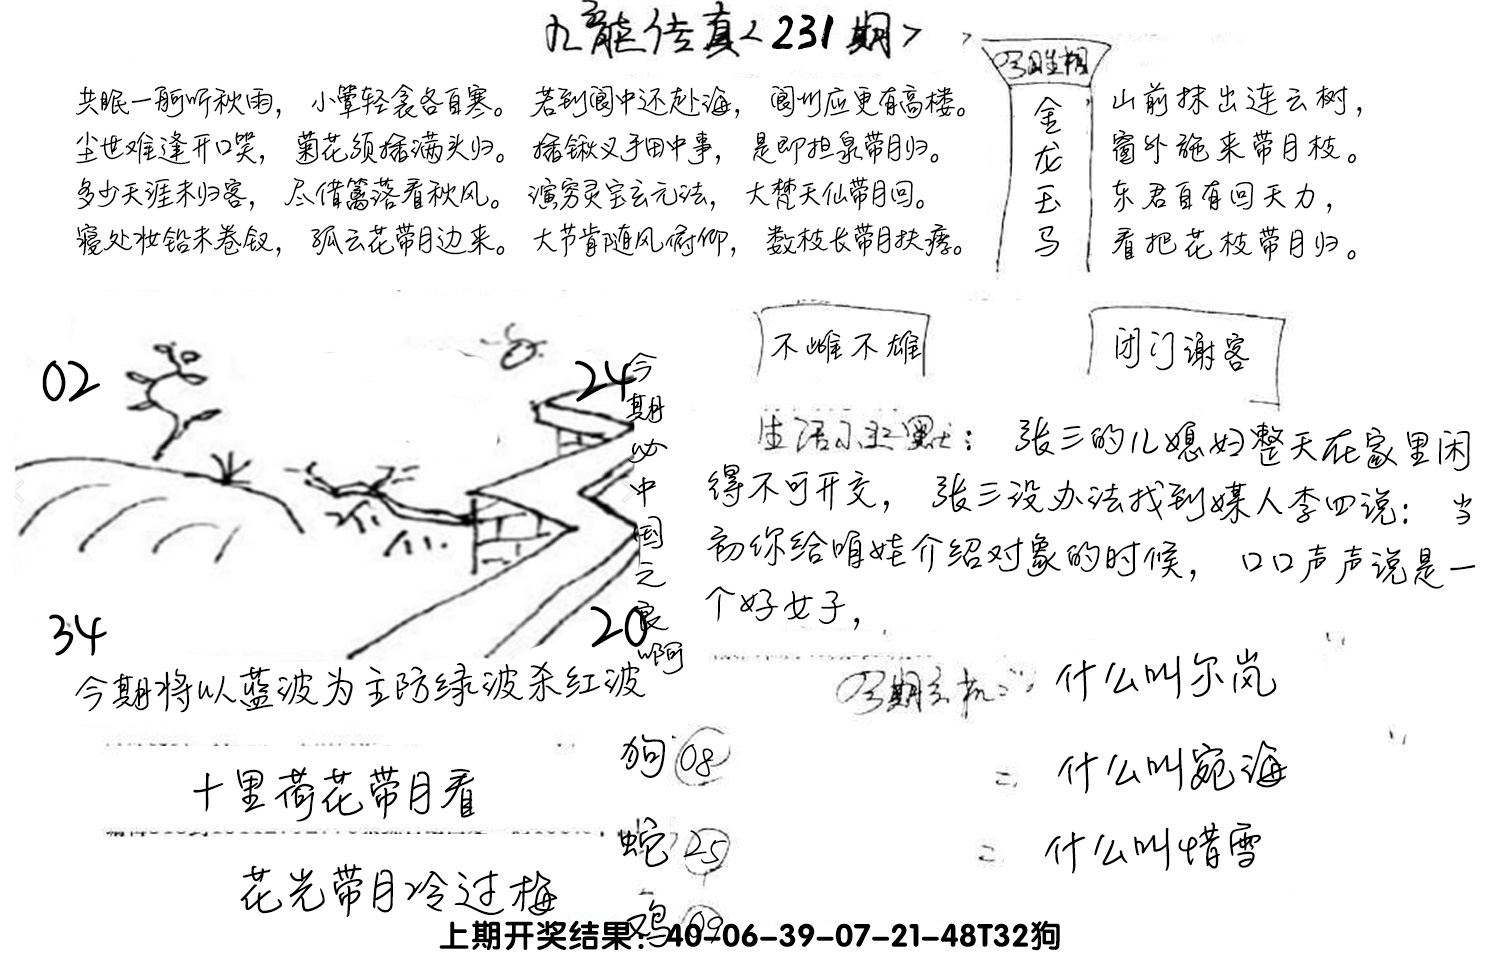 九龍传真<231期>
共眠一舸听秋雨，小簟轻衾各自寒。若到阆中还赴海，阆州应更有高楼。
尘世难逢开口笑，菊花须插满头归。插锹叉手田中事，是即担泉带月归。
多少天涯未归客，尽借篱落看秋风。演穷灵宝玄元法，大梵天仙带月回。
寝处妆铅未卷钗，孤云花带月边来。大节肯随风俯仰，数枝长带月扶疏。
金龙玉马
山前抹出连云树，
窗外施来带月枝。
东君自有回天力，
看把花枝带月归。
不雌不雄
闭门谢客
02
24
34
20
今期必中国元良啊
今期将以蓝波为主防绿波杀红波
生活幽默：张三的儿媳妇整天在家里闲
得不可开交，张三没办法找到媒人李四说：当
初你给咱娃介绍对象的时候，口口声声说是一
个好女子，
今期玄机：什么叫尔岚
= 什么叫宛海
= 什么叫惜雪
十里荷花带月看
花光带月冷过梅
狗08
蛇25
鸡09
上期开奖结果：40-06-39-07-21-48T32狗